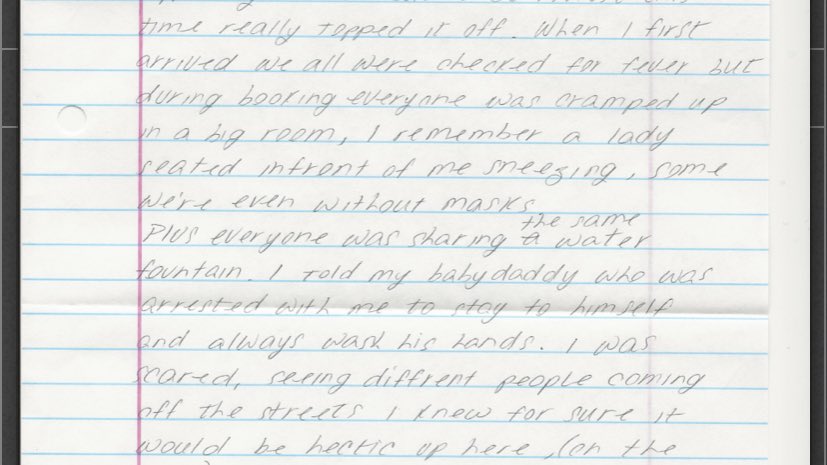 time really topped it off. When I first
arrived we all were checked for fever but
during booking everyone was cramped up
in a big room, I remember a lady
seated infront of me sneezing, some
we're even without masks
the same
Plus everyone was sharing a water
fountain. I told my babydaddy who was
arrested with me to stay to himself
and always wash his hands. I was
scared, seeing diffrent people coming
off the streets I knew for sure it
would be hectic up here, (on the